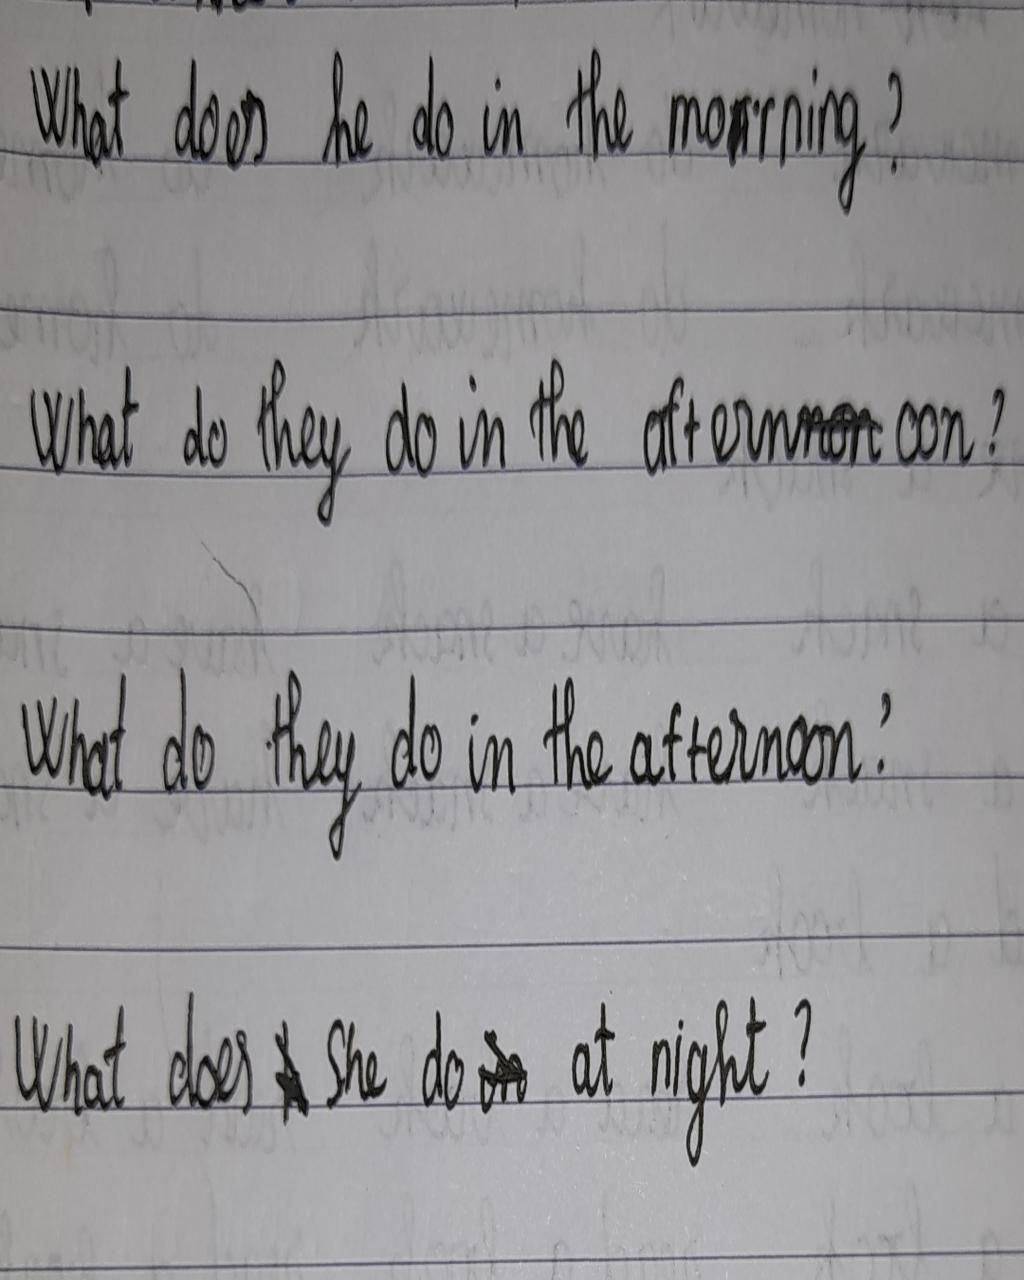 What does he do in the morrning?
What do they do in the afternoon?
What do they do in the afternoon?
What does She do at night?